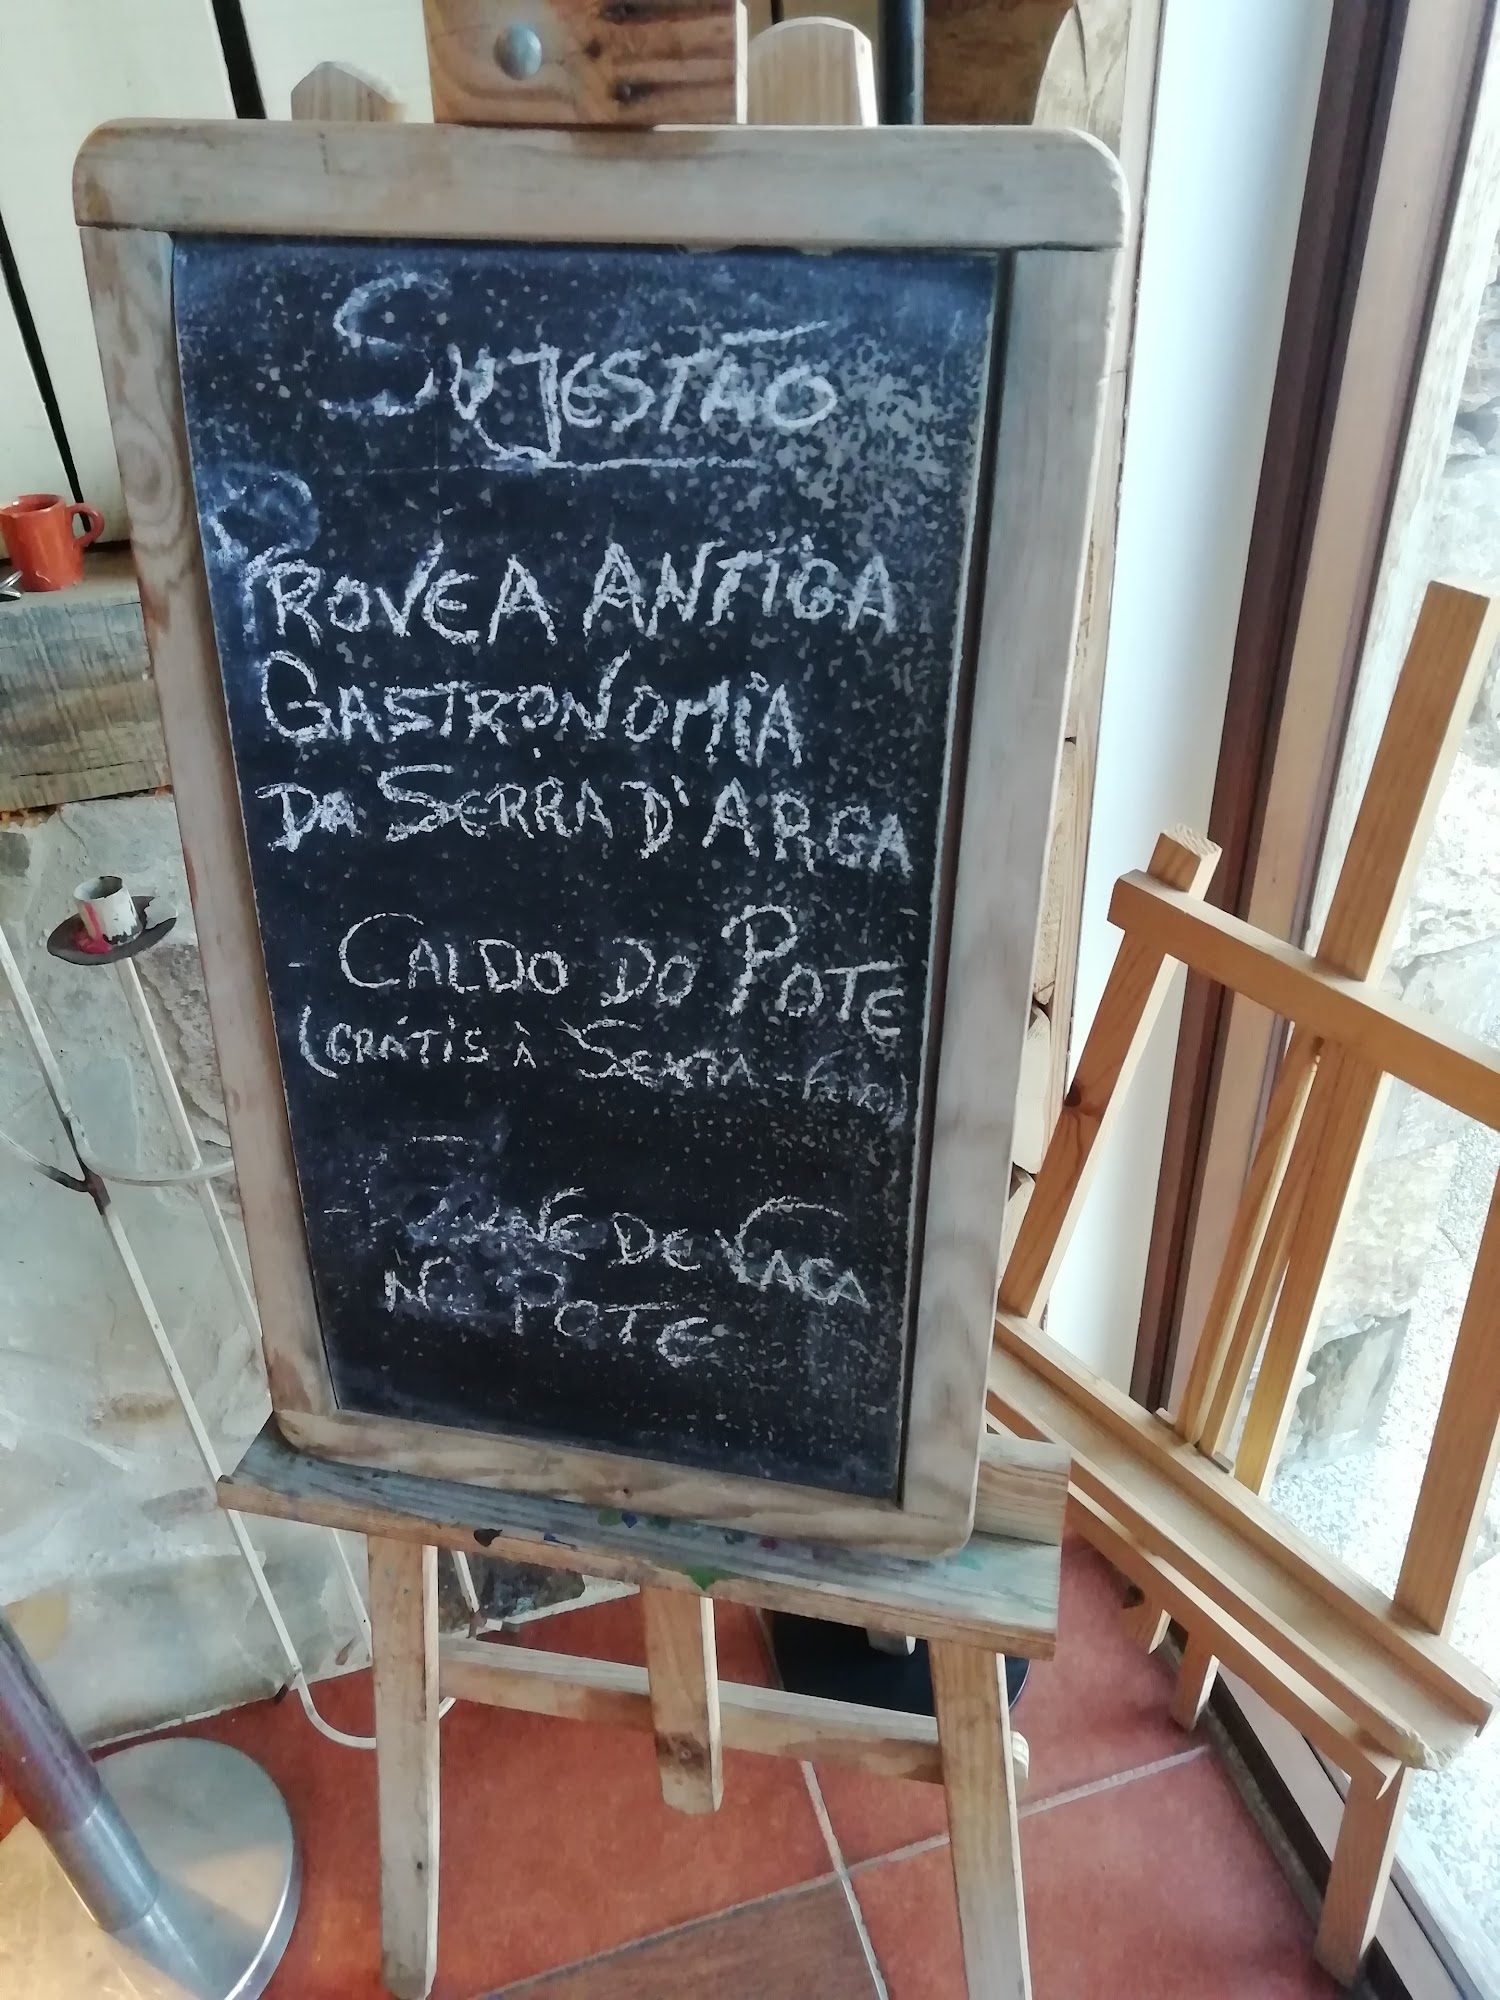 Sujestão
PROVE A ANTIGA
GASTRONOMIA
DA SERRA D'ARGA
- CALDO DO POTE
(GRÁTIS À SEXTA-FEIRA)
- CARNE DE VACA
NO POTE